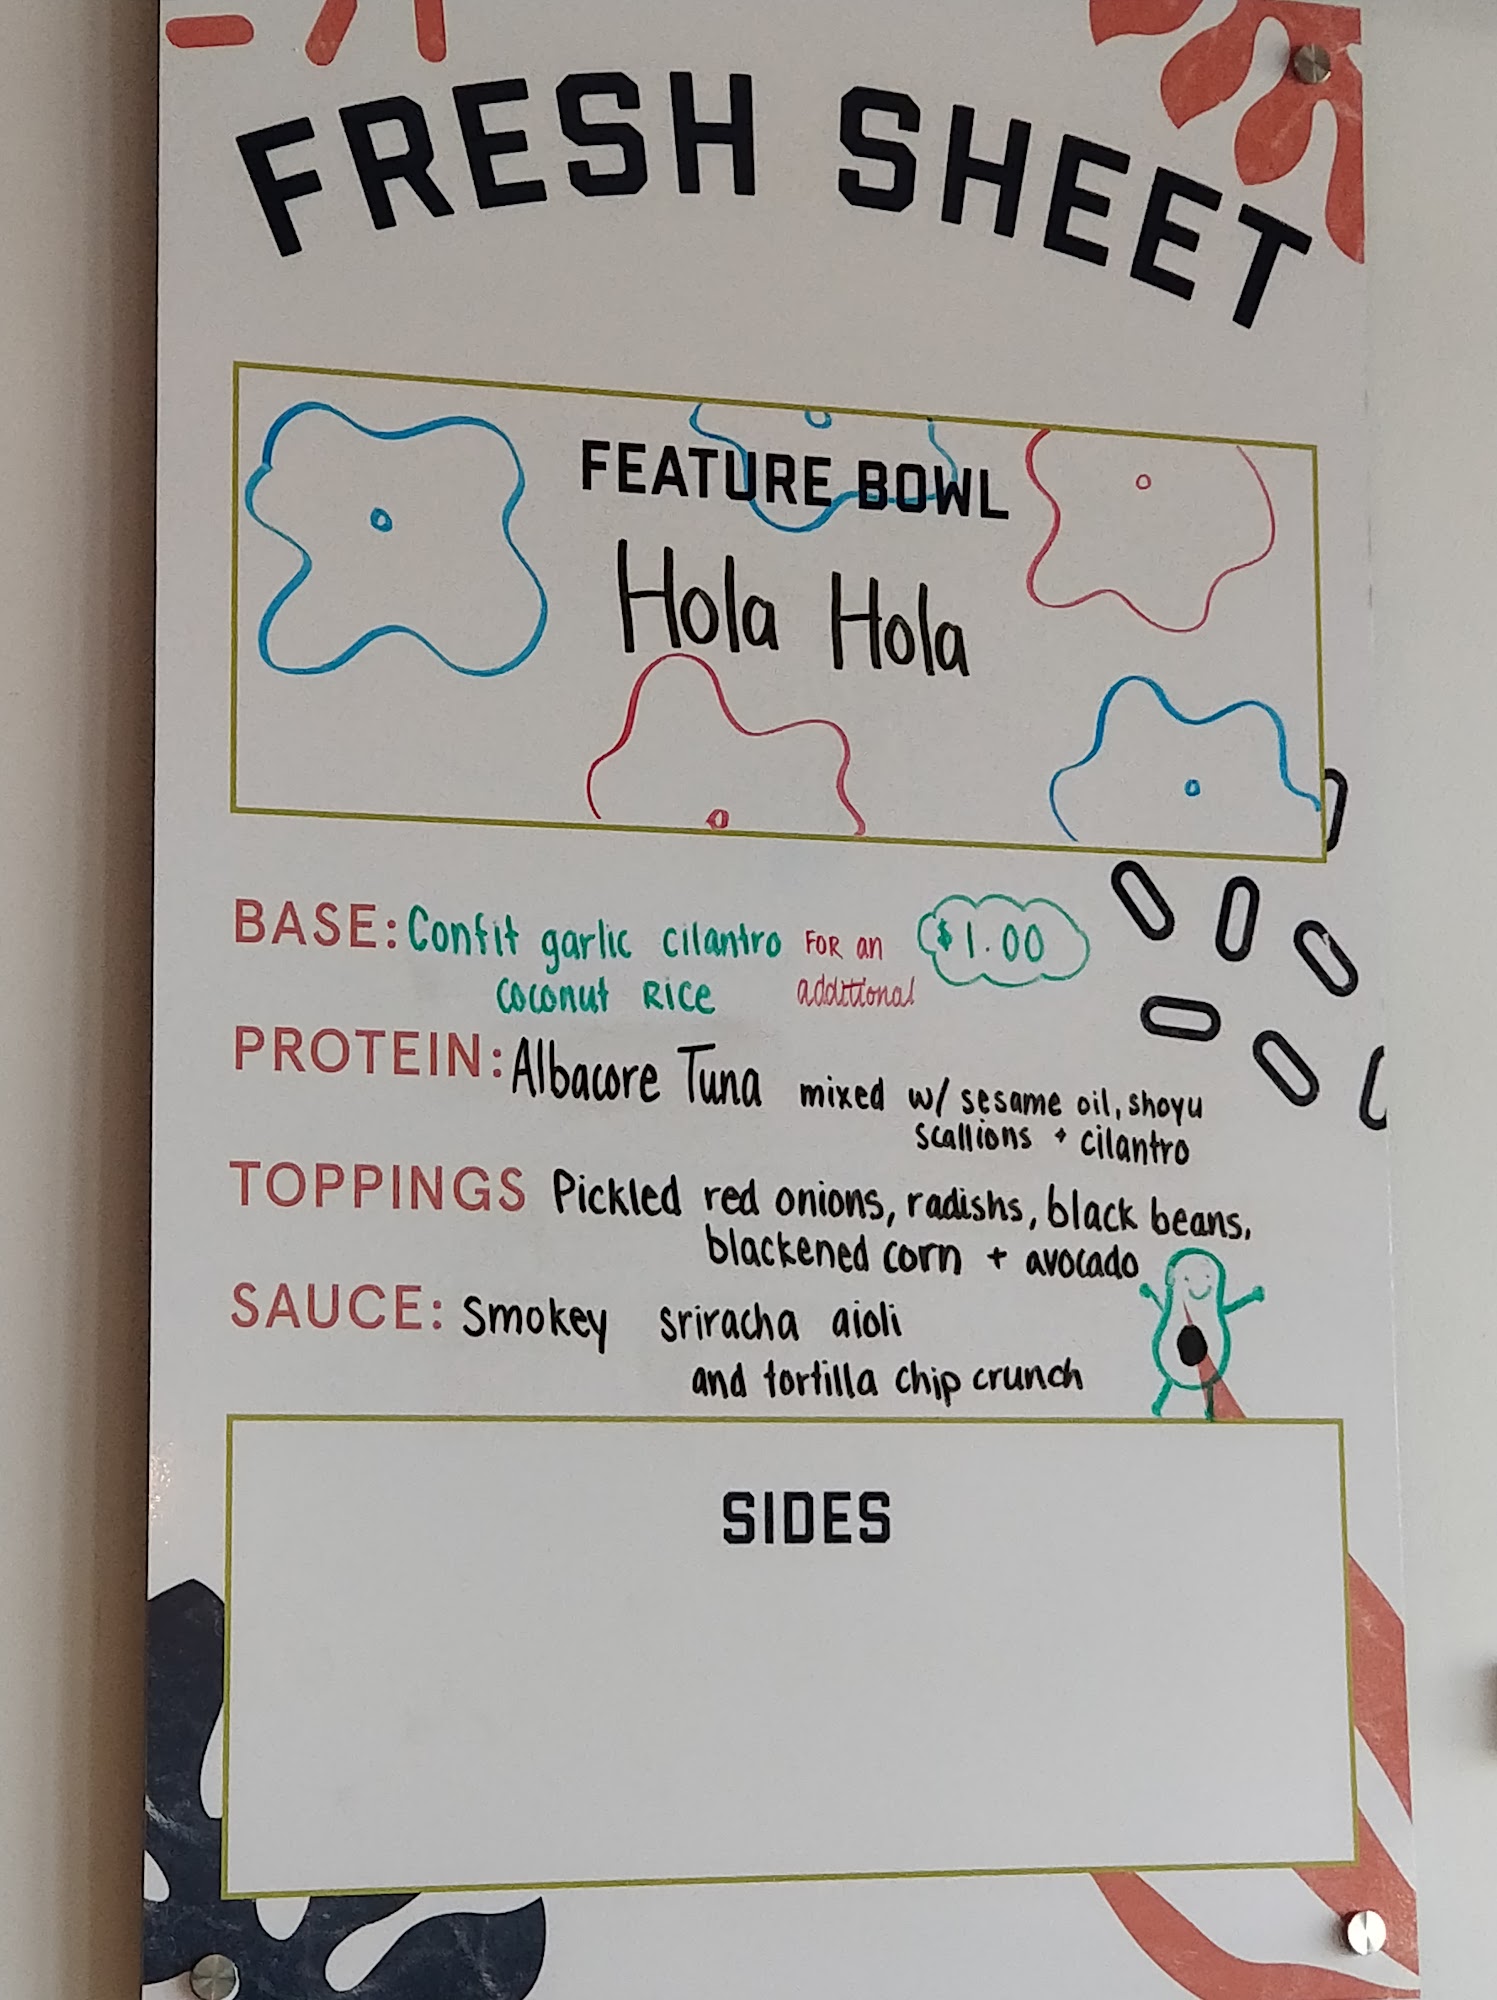 FRESH SHEET
FEATURE BOWL
Hola Hola
BASE: Confit garlic cilantro FOR an $1.00
coconut Rice additional
PROTEIN: Albacore Tuna mixed w/ sesame oil, shoyu
scallions + cilantro
TOPPINGS Pickled red onions, radishs, black beans,
blackened corn + avocado
SAUCE: Smokey sriracha aioli
and tortilla chip crunch
SIDES